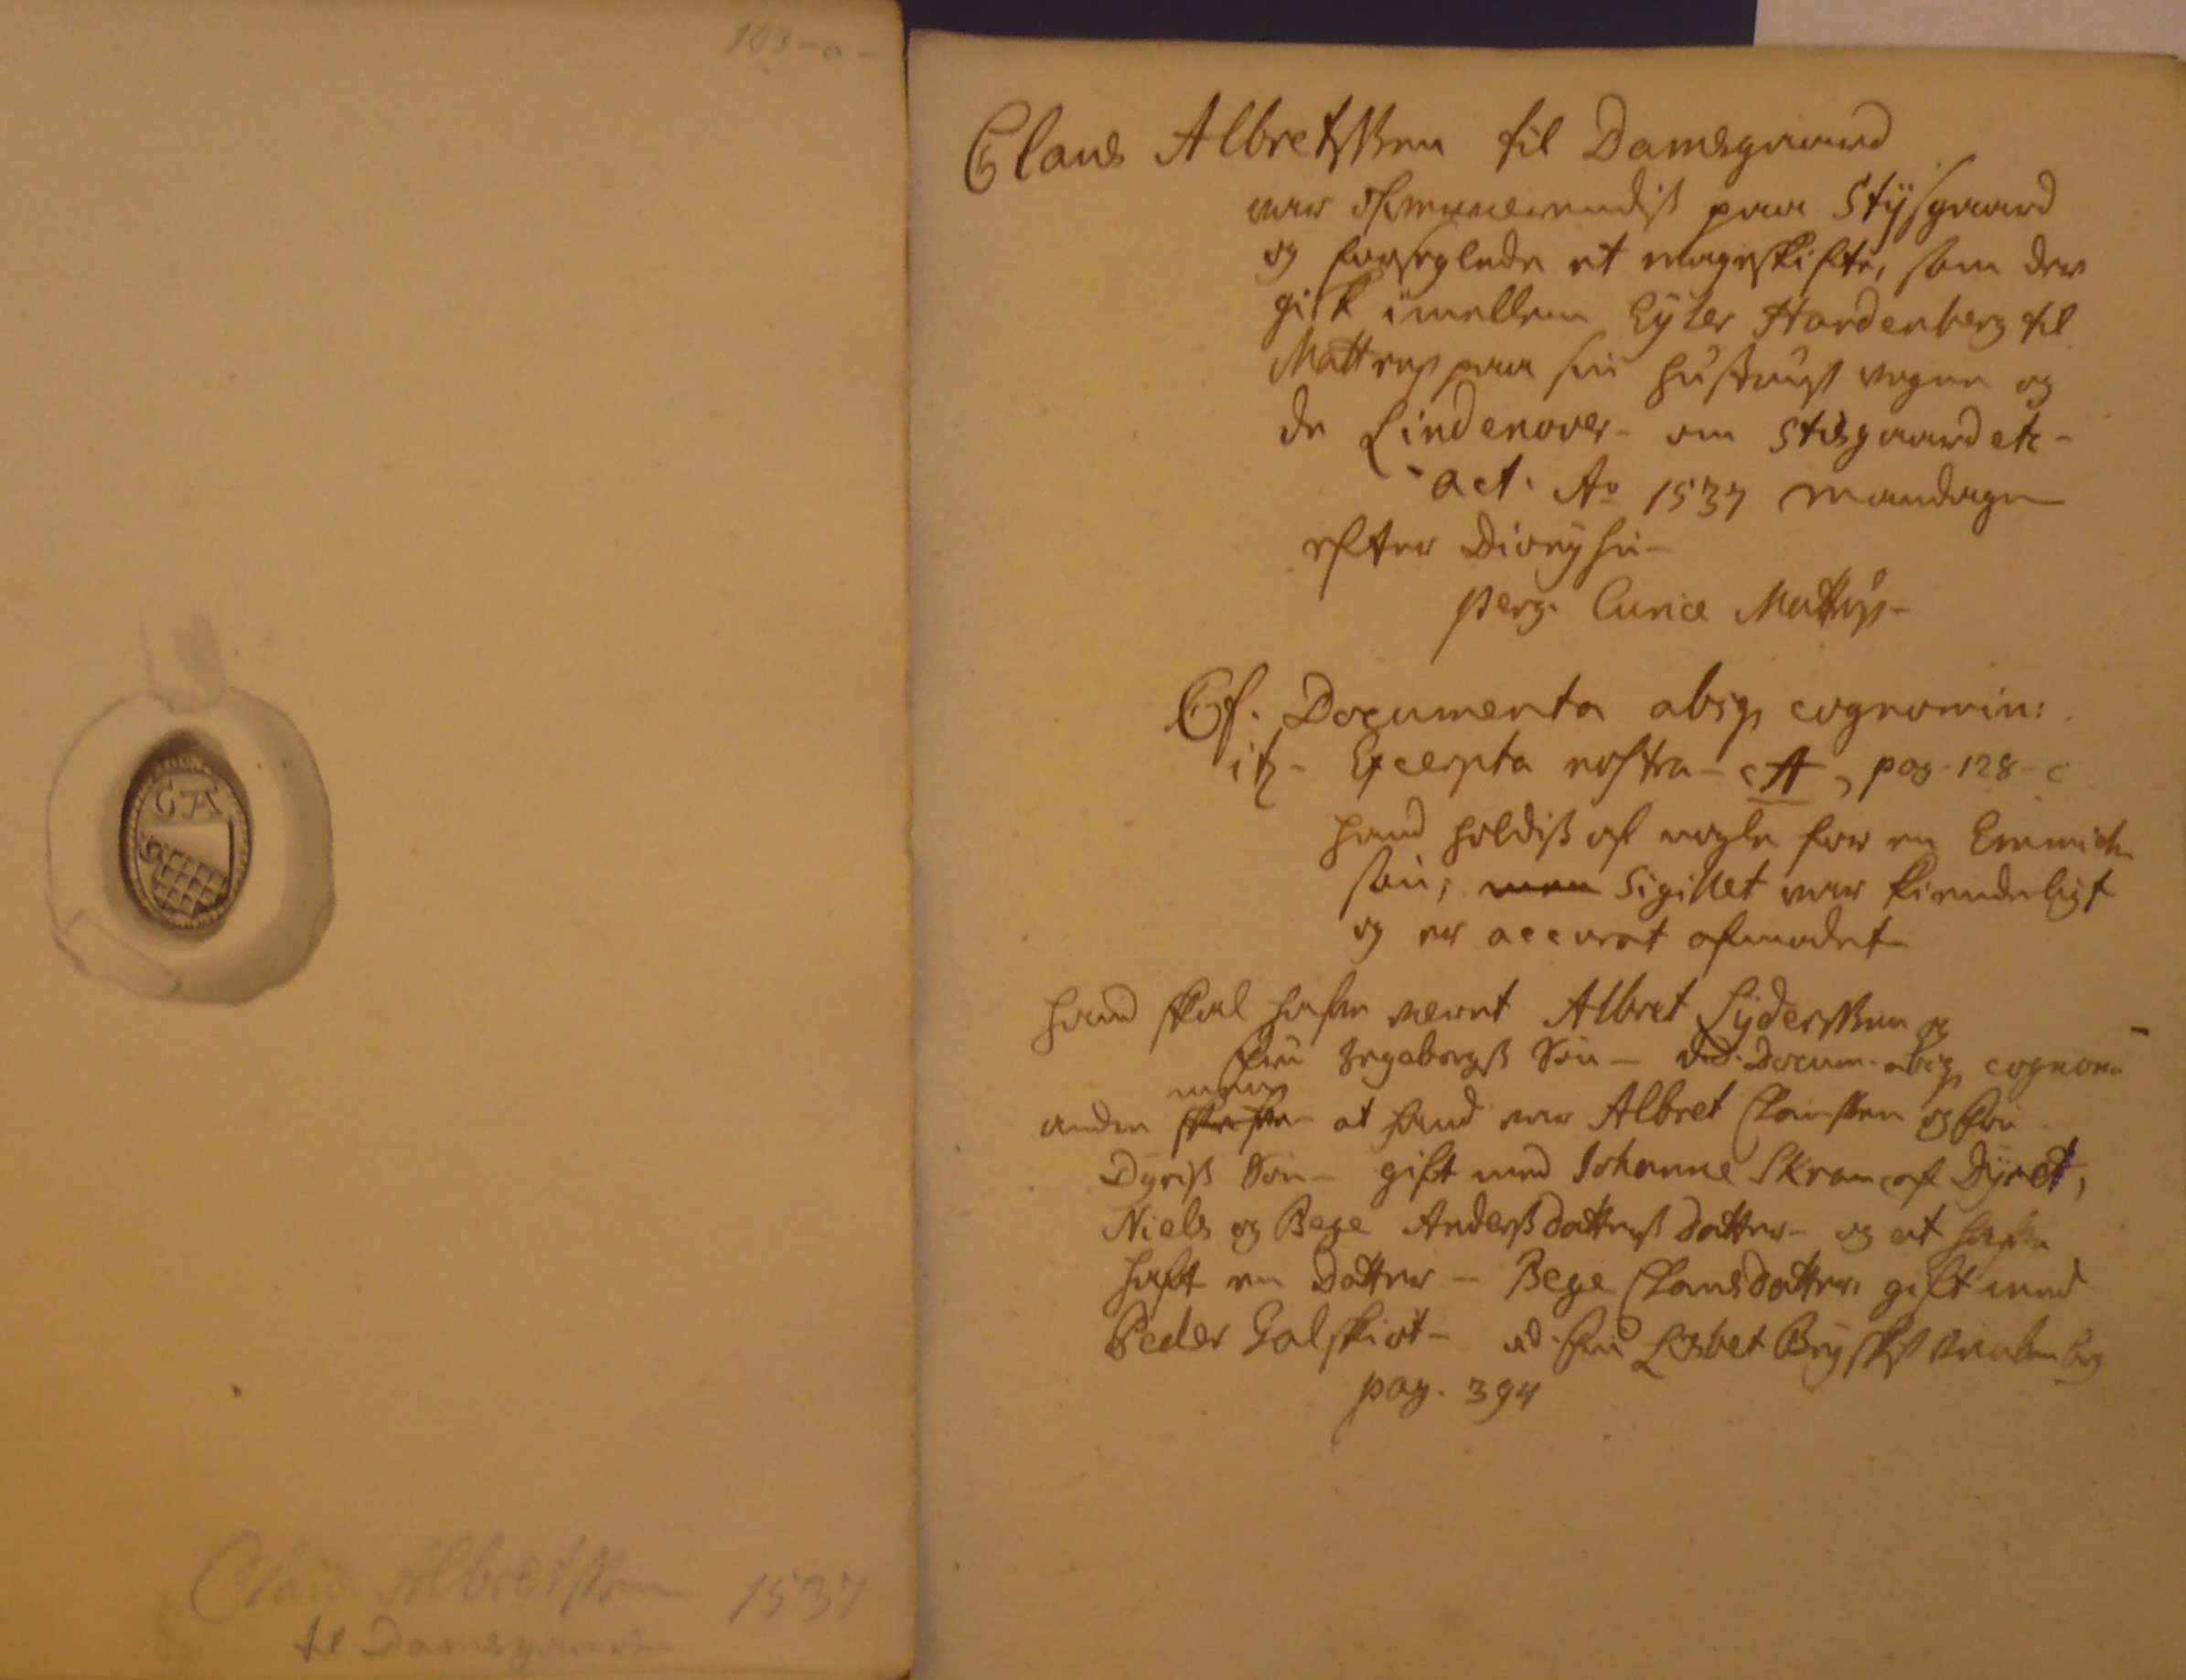 103-a-
CA
Claus Albretssen 1537
til Damsgaard
Claus Albretssen til Damsgaard
var ofverværendis paa Stÿsgaard
og forseglede et mageskifte, som der
gik imellem Eyler Hardenberg til
Mattrup paa sin hustruis vegne og
de Lindenover - om Stisgaard etc -
act. Ao 1537 Mandagen
efter Dionysii -
perg. Curiæ Mattrup -
Cf. Documenta absq cognomin:
it - Excerpta nostra - A, pag - 128 - c
hand holdis af nogle for en Emmich
søn; men Sigillet var kiendeligt
og er accurat afmadet
hand skal hafve været Albret Lyderssen og
fru Ingeborgs Søn - vid. Docum - absq cognom
meene
anden at hand var Albret Clausen og fru
Dyris Søn - gift med Johanne Skram af Dyret,
Niels og Bege Andersdatters datter - og at hafve
haft en Datter - Bege Clausdatter, gift med
Peder Galskiøt - vid. fru Lisbet Bryskis
pag. 394